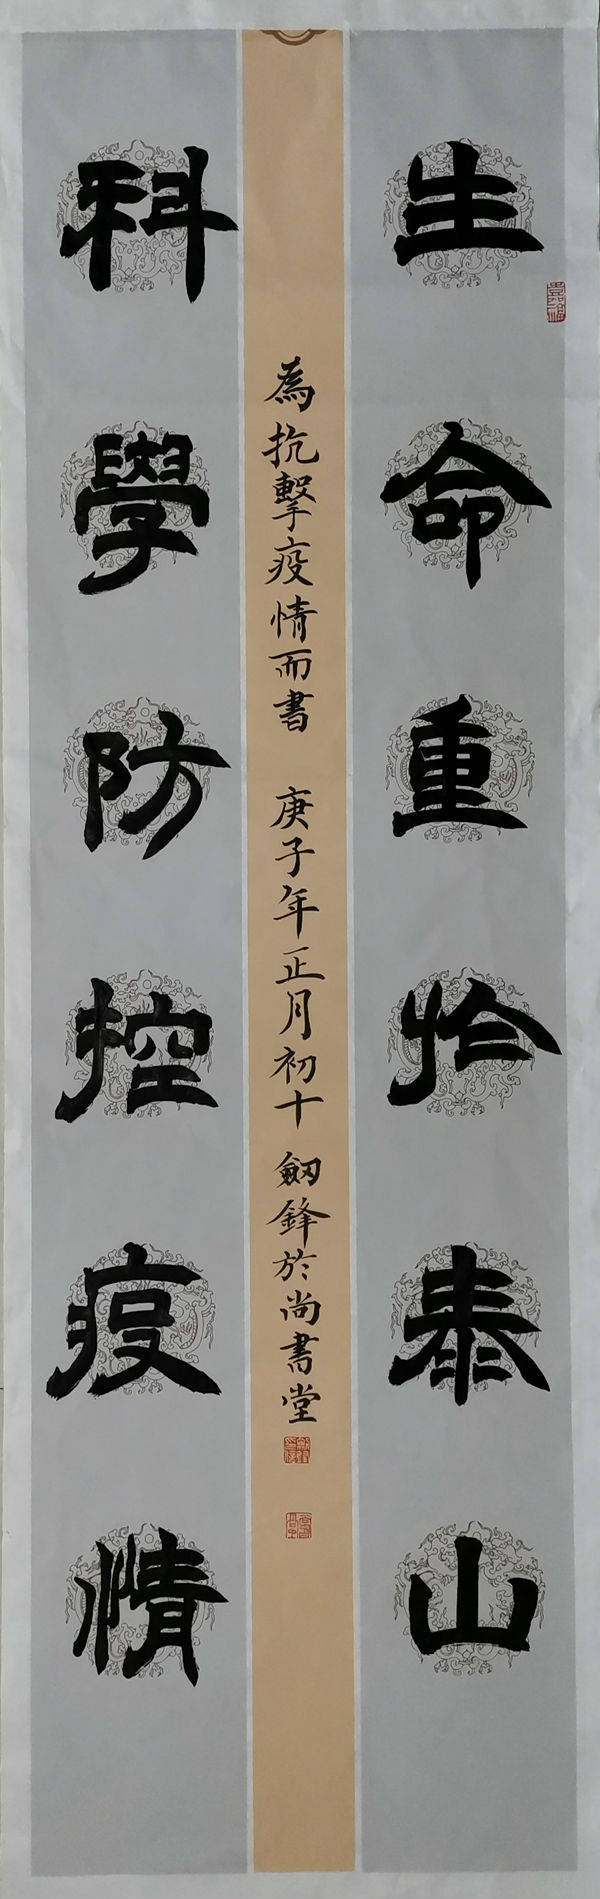 生命重於泰山
科學防控疫情
為抗擊疫情而書 庚子年正月初十 劔鋒於尚書堂